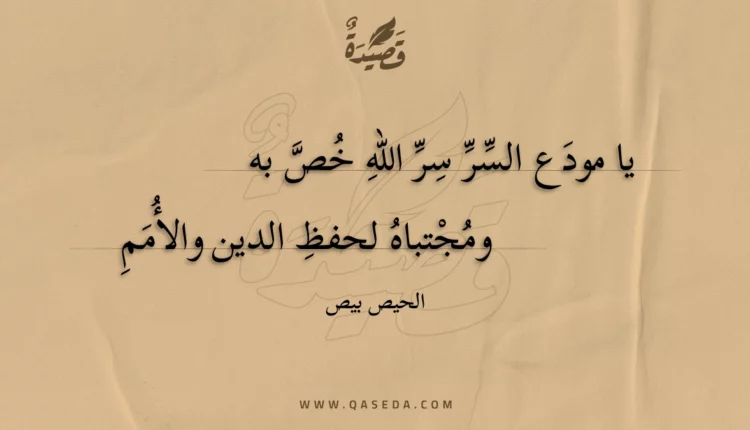 قَصِيْدَةٌ
يا مودَع السِّرِّ سِرِّ اللهِ خُصَّ به
ومُجْتباهُ لحفظِ الدين والأُمَمِ
الحيص بيص
WWW.QASEDA.COM